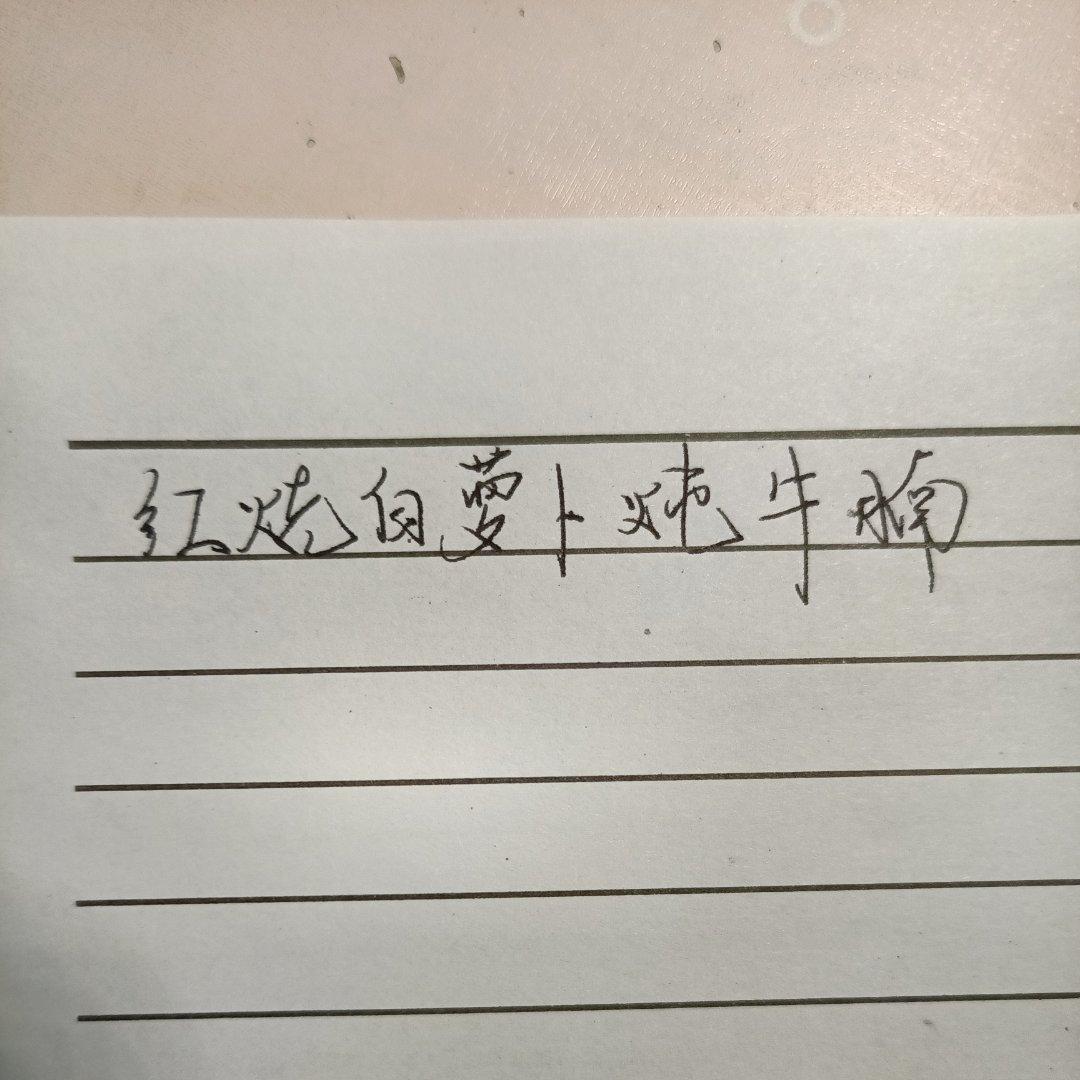 红烧白萝卜炖牛腩